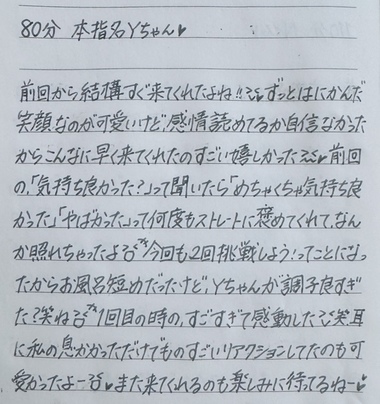 80分 本指名Yちゃん♥
前回から結構すぐ来てくれたよね!!ずっとはにかんだ
笑顔なのが可愛いけど、感情読めてるか自信なかった
からこんなに早く来てくれたのすごい嬉しかった♥前回
の、「気持ち良かった?」って聞いたら「めちゃくちゃ気持ち良
かった」「やばかった」って何度もストレートに褒めてくれて、なん
か照れちゃったよ 今回も2回挑戦しよう!ってことになっ
たからお風呂短めだったけど、Yちゃんが調子良すぎ
た?笑ね 1回目の時の、すごすぎて感動した 笑耳
に私の息かかっただけでものすごいリアクションしてたのも可
愛かったよー♥また来てくれるのも楽しみに待ってるねー♥